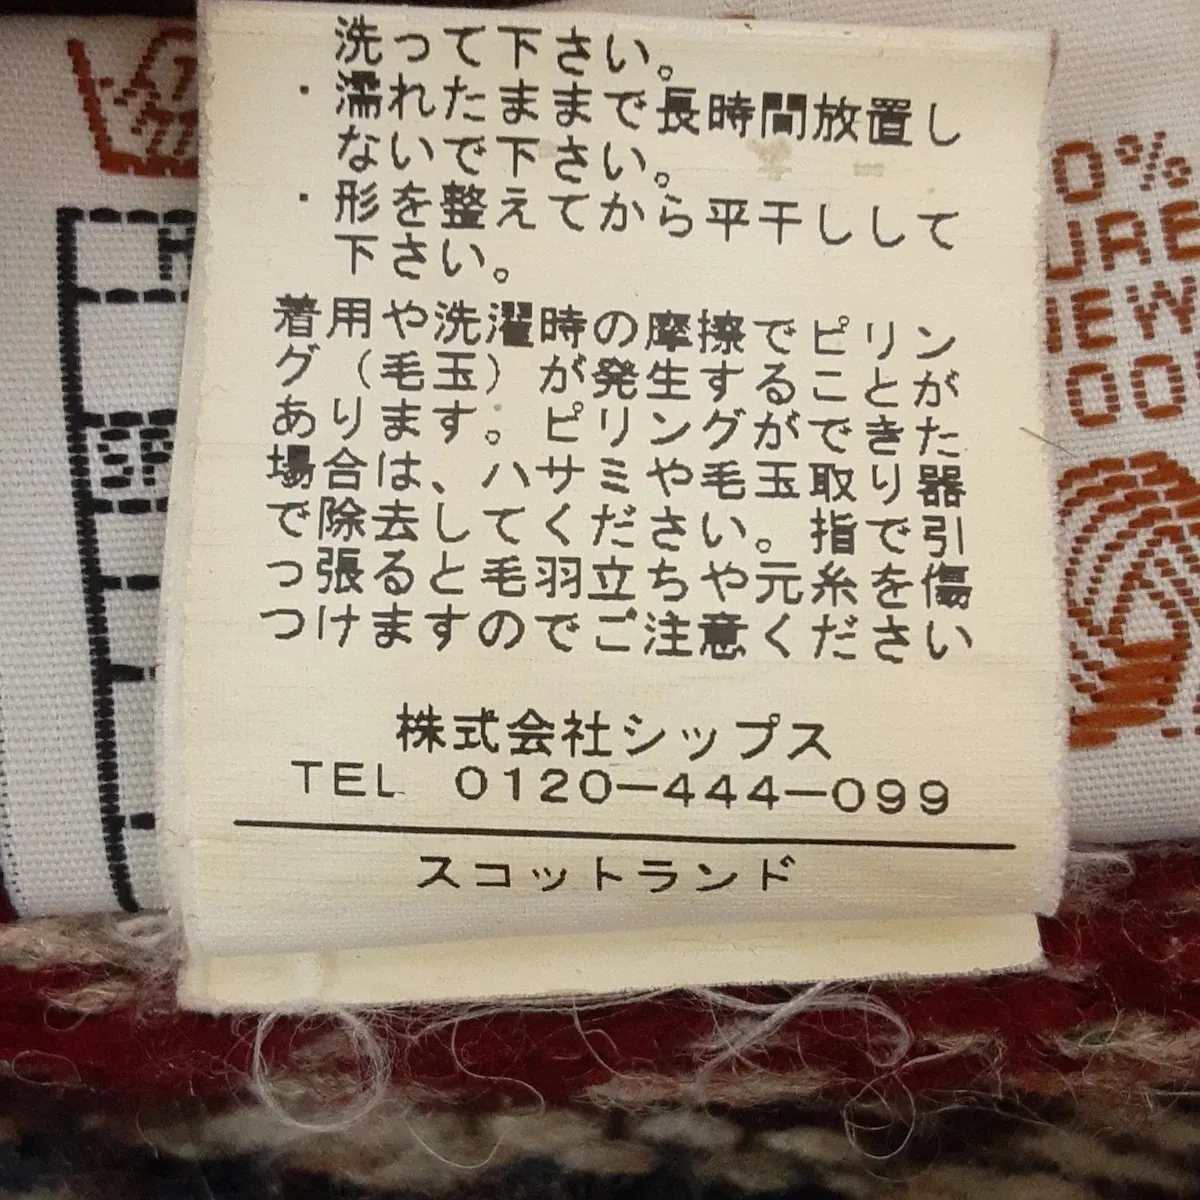 洗って下さい。
・濡れたままで長時間放置し
ないで下さい。
・形を整えてから平干しして
下さい。
着用や洗濯時の摩擦でピリン
グ（毛玉）が発生することが
あります。ピリングができた
場合は、ハサミや毛玉取り器
で除去してください。指で引
っ張ると毛羽立ちや元糸を傷
つけますのでご注意ください
株式会社シップス
TEL 0120-444-099
スコットランド
0%
URE
NEW
OO